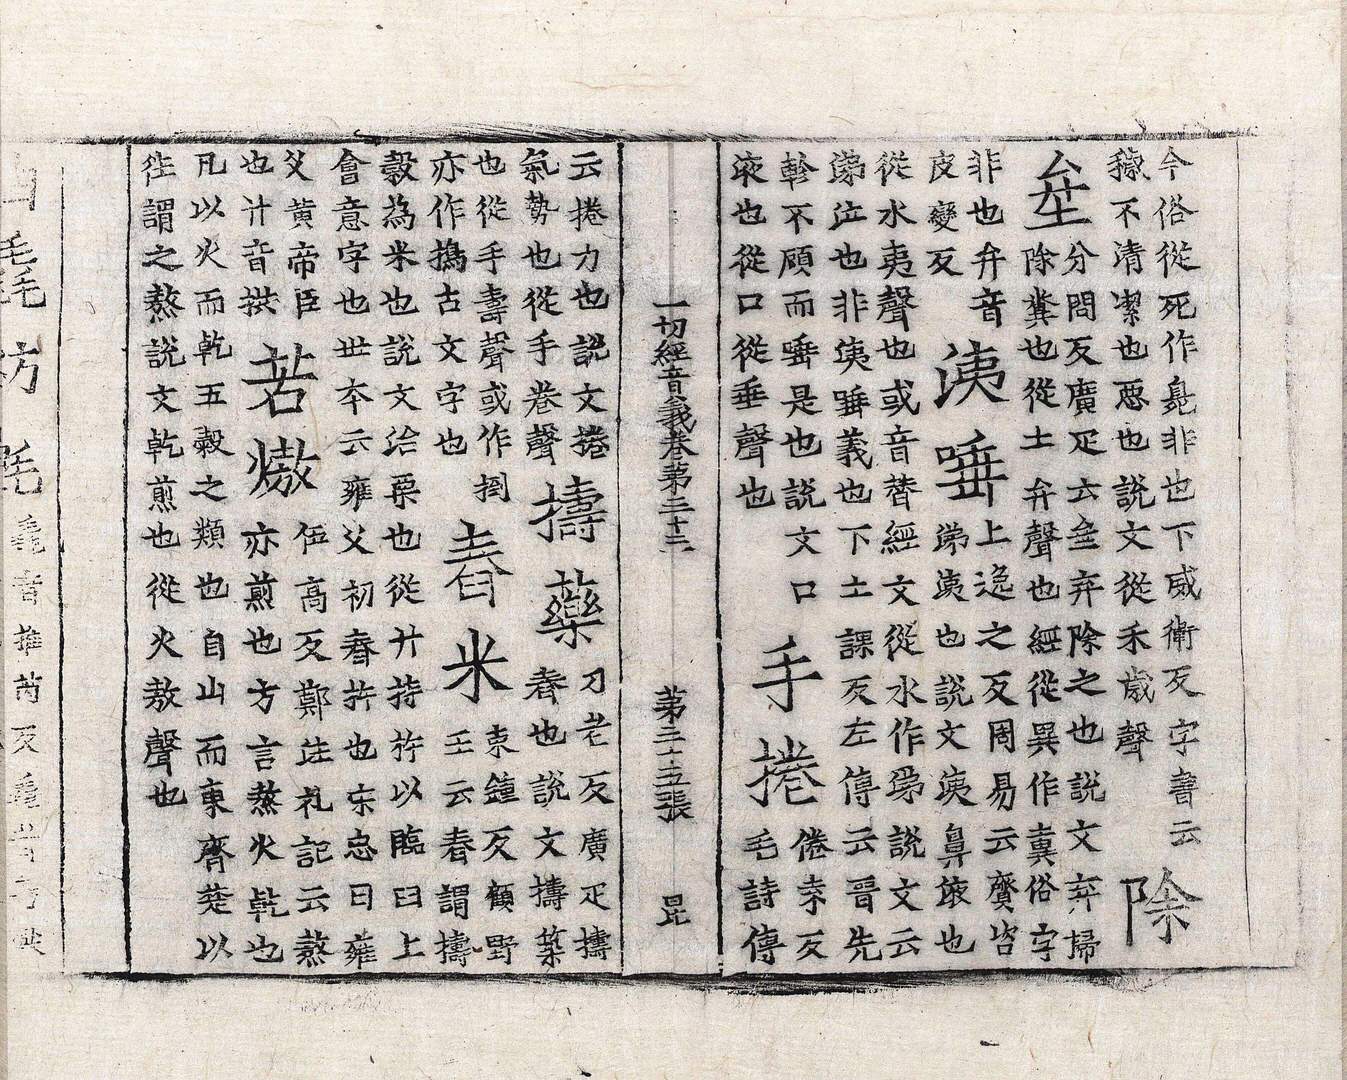 今俗從死作臰非也下威衛反字書云
穢不清潔也惡也說文從禾歲聲
除坌
分問反廣疋云坌弃除之也說文弃掃
除糞也從土弁聲也經從異作糞俗字
非也弁音
皮變反
洟唾
上逸之反周易云齎咨
涕洟也說文洟鼻液也
從水夷聲也或音替經文從水作涕說文云
涕泣也非洟唾義也下土課反左傳云晉先
軫不顧而唾是也說文口
液也從口從垂聲也
手捲
倦袁反
毛詩傳
一切經音義卷第三十三 第三十五張 昆
云捲力也說文捲
氣勢也從手卷聲
擣藥
刀老反廣疋擣
舂也說文擣築
也從手壽聲或作捯
亦作搗古文字也
舂米
束鍾反顧野
王云舂謂擣
穀為米也說文治粟也從廾持杵以臨臼上
會意字也世本云雍父初舂杵也宋忠曰雍
父黃帝臣
也廾音拱
若熬
伍高反鄭注礼記云熬
亦煎也方言熬火乾也
凡以火而乾五穀之類也自山而東齊楚以
徃謂之熬說文乾煎也從火敖聲也